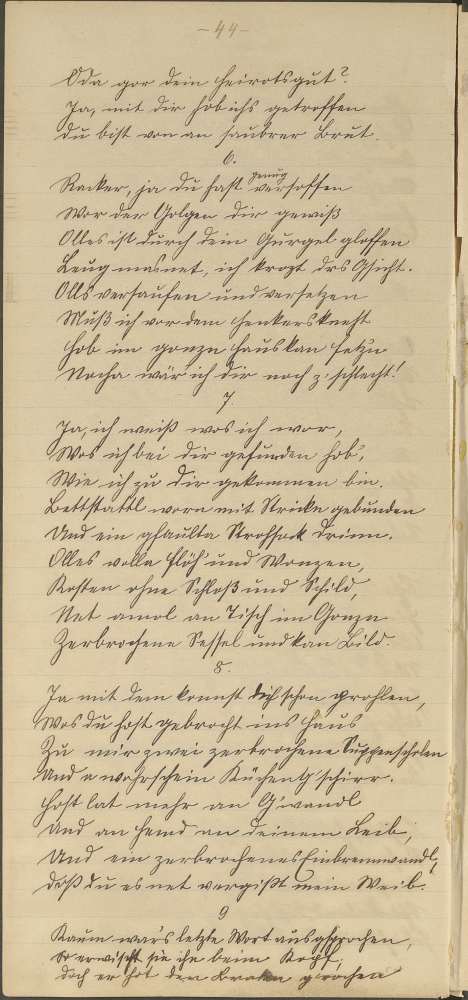 -44-
Oda gor dein Heirotsgut?
Ja, mit dir hob ichs getroffen
Du bist von an saubrer Brut.
6.
Racker, ja du hast genug versoffen
Wor der Golgen dir gewiß
Olles ist durch dein Gurgel gloffen
Leug mas net, ich krozt drs Gsicht.
Olls versaufen und versetzen
Muß ich vor dem Henkersknecht
Hob im gonzn Haus kan Fetzn
Nocha wär ich dir noch z'schlecht!
7
Ja, ich weiß wos ich wor,
Wos ich bei dir gefunden hob,
Wie ich zu dir gekommen bin.
Bettstattl worn mit Strickn gebunden
Und ein gfaulta Strohsack drinn.
Olles volla Flöh und Wonzen,
Kosten ohne Schloß und Schild,
Net amol an Tisch im Gonzn
Zerbrochene Sessel und kan Bild.
8.
Ja mit dem konnst dich schon prohlen,
Wos du host gebrocht ins Haus
Zu mir zwei zerbrochene Suppenscholen
Und a Küchengschirr.
Host lat mehr an G'wandl
Und an Hemd an deinem Leib,
Und ein zerbrochenes Einbrennwandl,
Doß du es net vergißt mein Weib.
9
Kaum wars letzte Wort ausgsprochen,
So erwischt sie ihn beim Kopf,
Doch er hot den Braten grochen